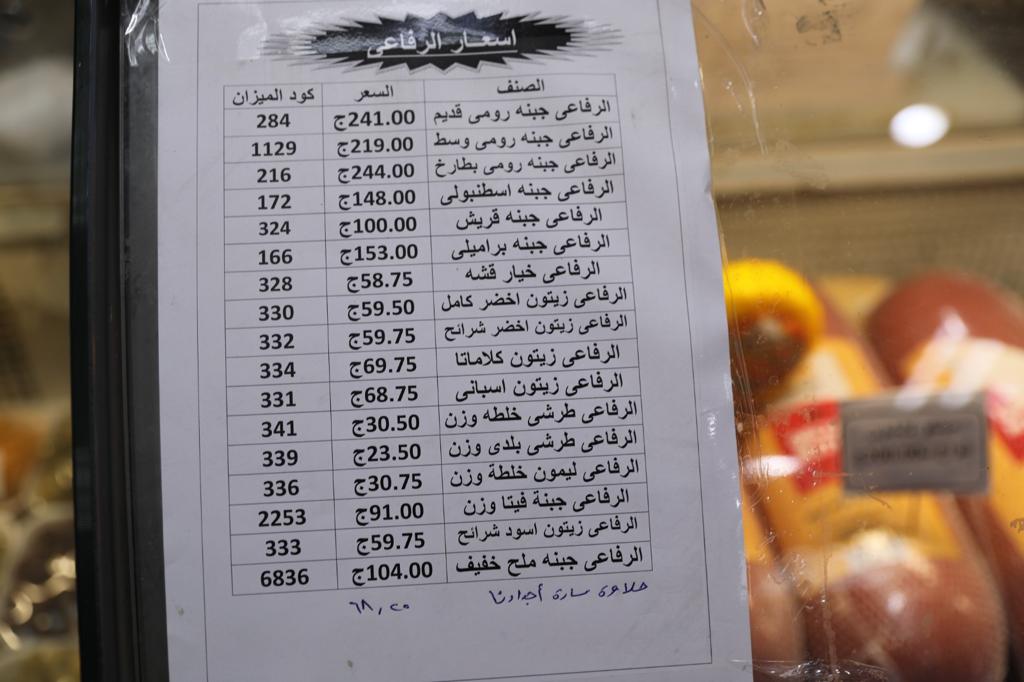 اسعار الرفاعى
الصنف السعر كود الميزان
الرفاعى جبنه رومى قديم 241.00ج 284
الرفاعى جبنه رومى وسط 219.00ج 1129
الرفاعى جبنه رومى بطارخ 244.00ج 216
الرفاعى جبنه اسطنبولى 148.00ج 172
الرفاعى جبنه قريش 100.00ج 324
الرفاعى جبنه براميلى 153.00ج 166
الرفاعى خيار قشه 58.75ج 328
الرفاعى زيتون اخضر كامل 59.50ج 330
الرفاعى زيتون اخضر شرائح 59.75ج 332
الرفاعى زيتون كلاماتا 69.75ج 334
الرفاعى زيتون اسبانى 68.75ج 331
الرفاعى طرشى خلطه وزن 30.50ج 341
الرفاعى طرشى بلدى وزن 23.50ج 339
الرفاعى ليمون خلطة وزن 30.75ج 336
الرفاعى جبنة فيتا وزن 91.00ج 2253
الرفاعى زيتون اسود شرائح 59.75ج 333
الرفاعى جبنه ملح خفيف 104.00ج 6836
حلاوة سادة أجدادنا